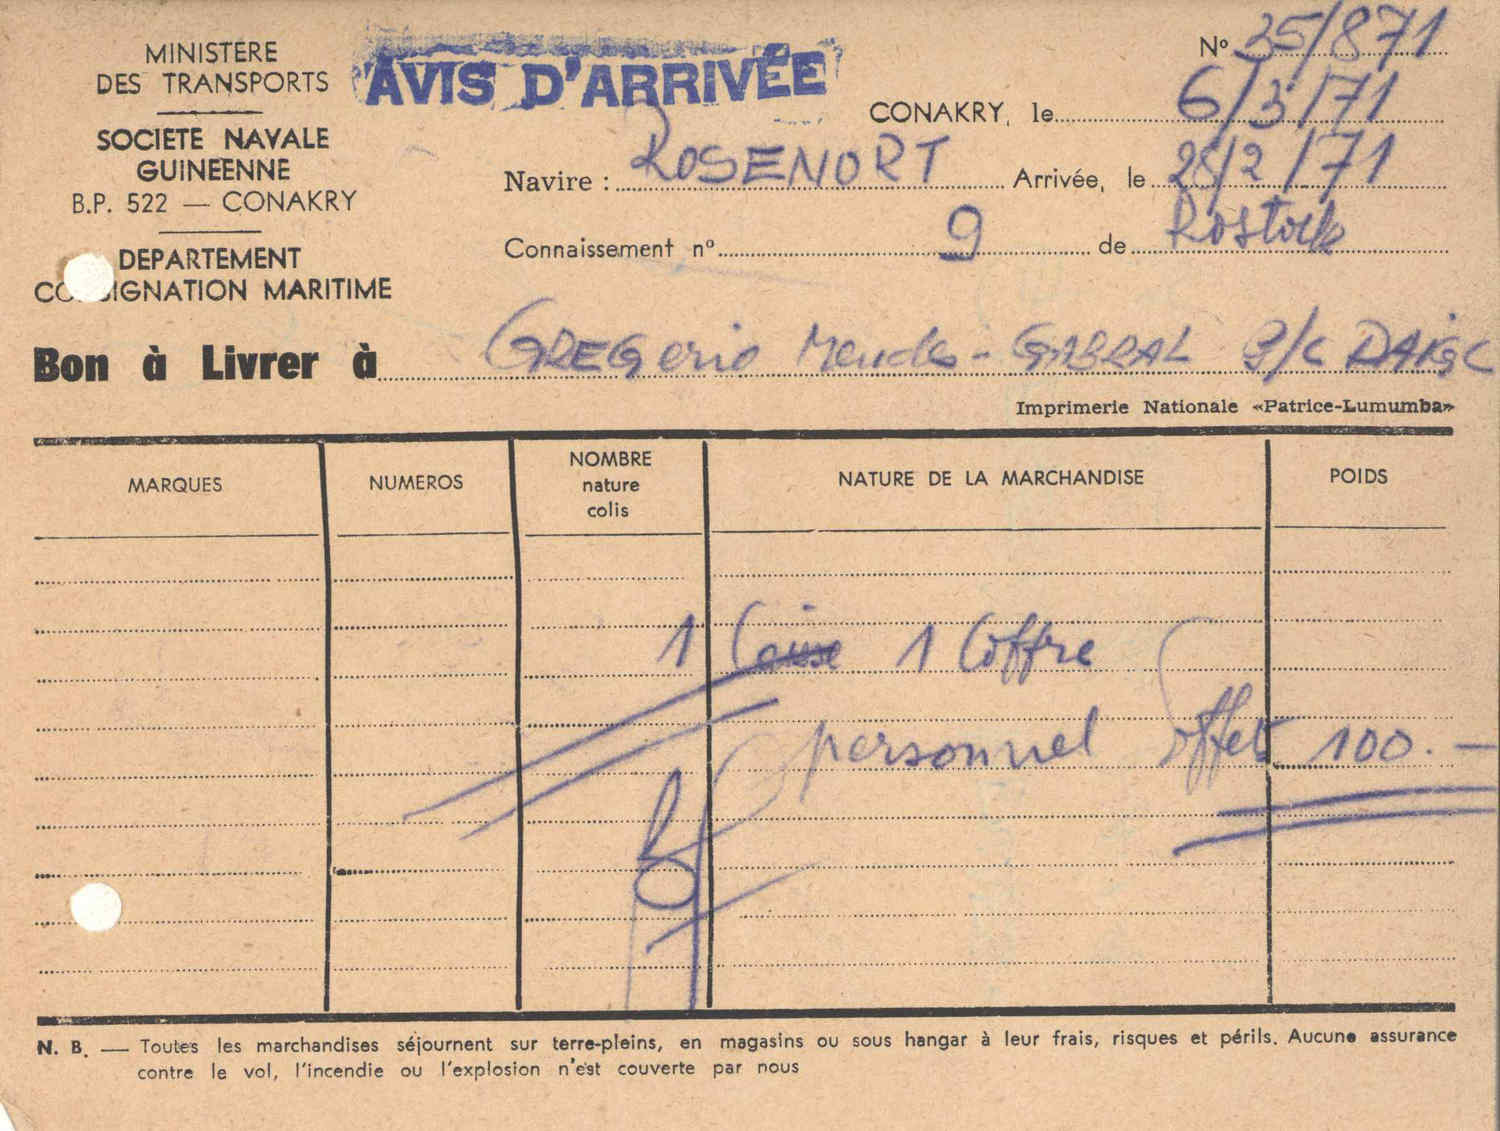 MINISTERE
DES TRANSPORTS
SOCIETE NAVALE
GUINEENNE
B.P. 522 — CONAKRY
DEPARTEMENT
CO SIGNATION MARITIME
AVIS D'ARRIVÉE
Nº 35/871
CONAKRY, le 6/3/71
Navire : ROSENORT Arrivée, le 28/2/71
Connaissement nº 9 de Rostock
Bon à Livrer à GREGerio Mendes - CABRAL P/C PAIGC
Imprimerie Nationale «Patrice-Lumumba»
MARQUES NUMEROS NOMBRE nature colis NATURE DE LA MARCHANDISE POIDS
1 Caisse 1 Coffre
personnel effet 100.-
N. B. — Toutes les marchandises séjournent sur terre-pleins, en magasins ou sous hangar à leur frais, risques et périls. Aucune assurance
contre le vol, l'incendie ou l'explosion n'est couverte par nous